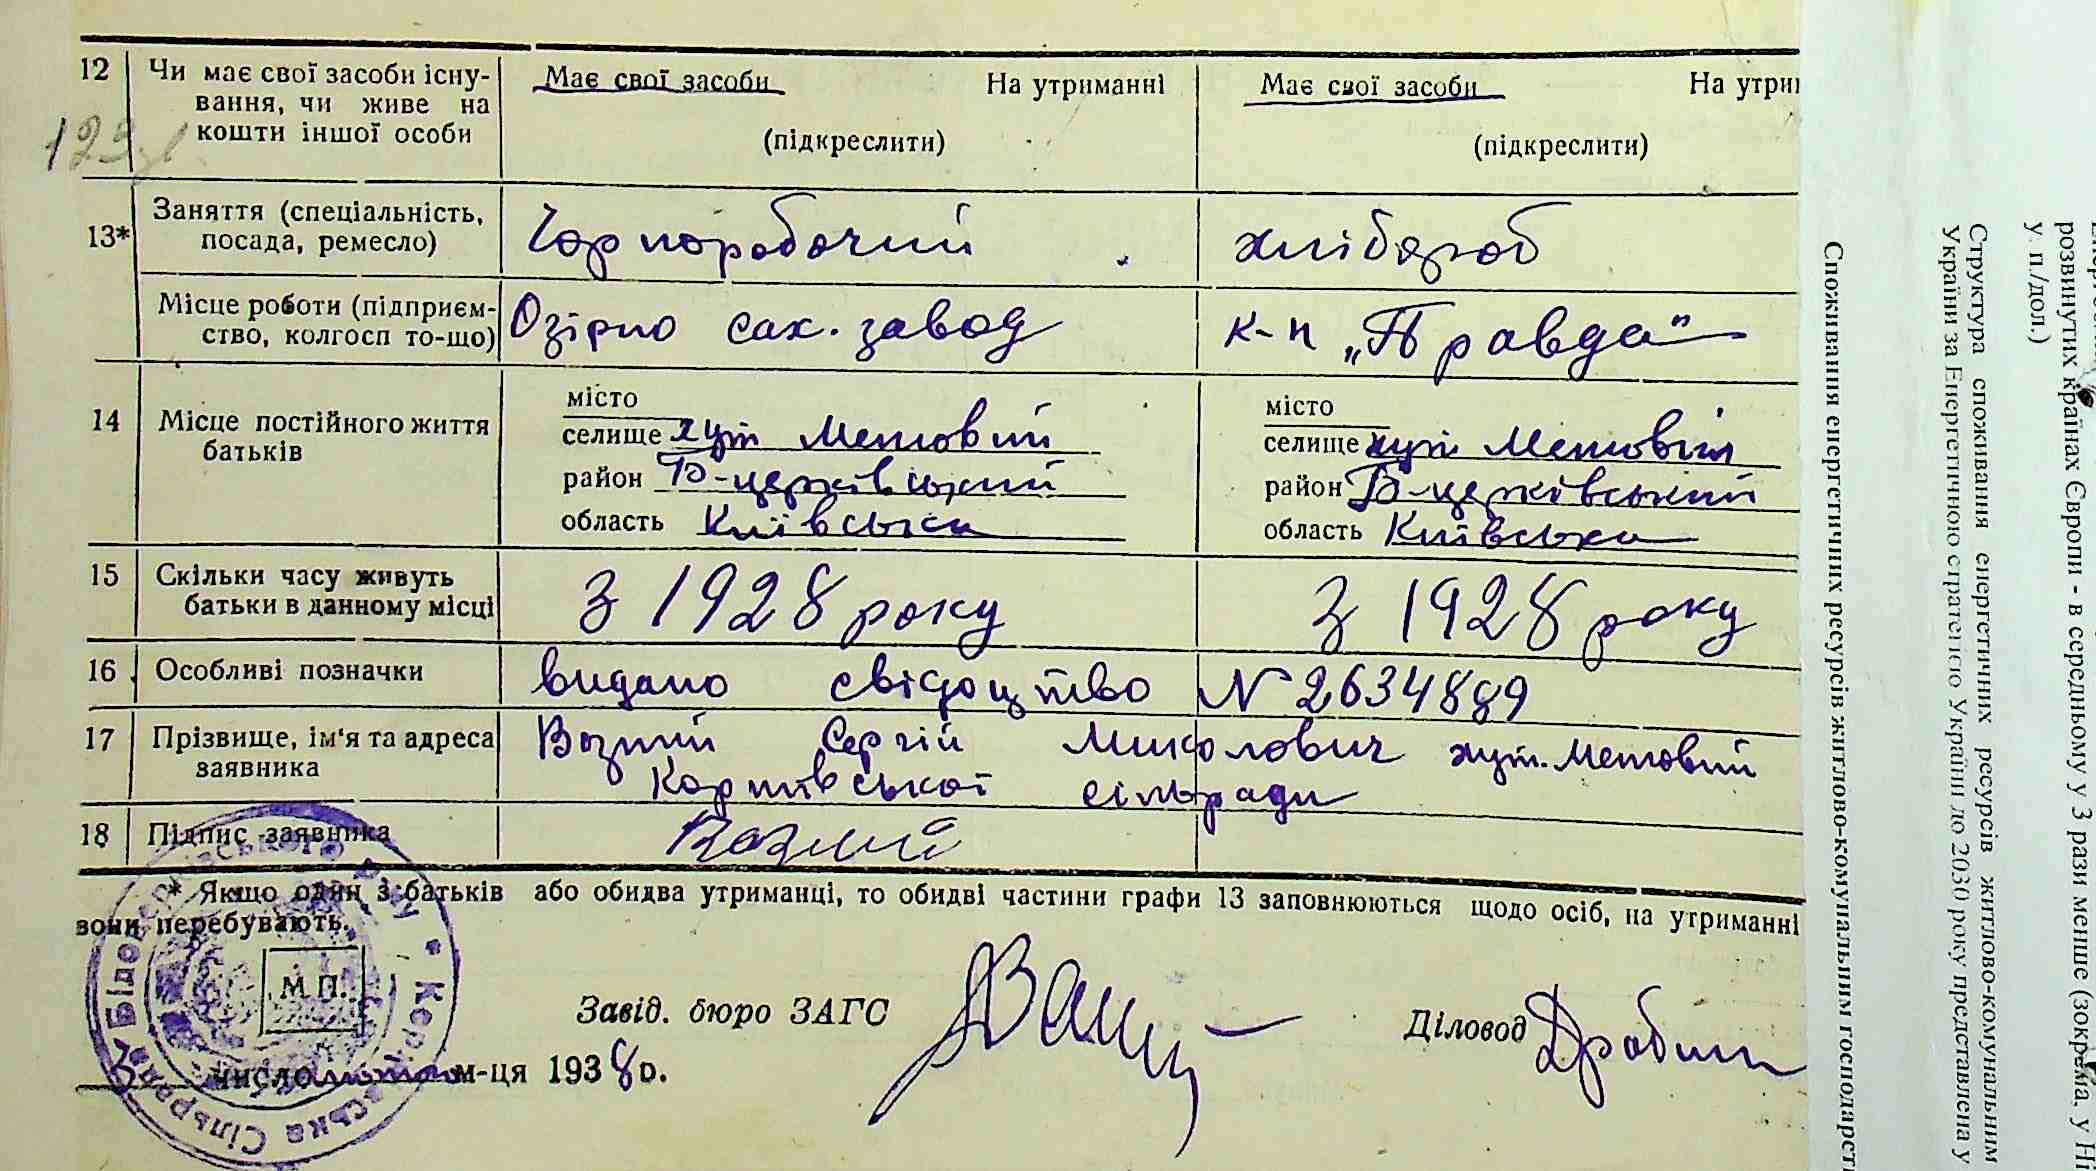 12 Чи має свої засоби існу- Має свої засоби На утриманні Має свої засоби На утри
вання, чи живе на
кошти іншої особи (підкреслити) (підкреслити)
13* Заняття (спеціальність, Чорноробочий хлібороб
посада, ремесло)
Місце роботи (підприєм- Озірно сах. завод к-п „Правда"
ство, колгосп то-що)
14 Місце постійного життя батьків
місто місто
селище хут Метовий селище хут Метовий
район Б-церківський район Б-церківський
область Київська область Київська
15 Скільки часу живуть З 1928 року З 1928 року
батьки в данному місці
16 Особливі позначки видано свідоцтво N 2634889
17 Прізвище, ім'я та адреса Возний Сергій Миколович хут. Метовий
заявника сільради
18 Підпис заявника Возний
* Якщо один з батьків або обидва утриманці, то обидві частини графи 13 заповнюються щодо осіб, на утриманні
вони перебувають.
М.П.
Завід. бюро ЗАГС Діловод
число м-ця 1938 р.
Сільрада
Споживання енергетичних ресурсів житлово-комунальним господарст
Структура споживання енергетичних ресурсів житлово-комунальним
України за Енергетичною стратегією України до 2030 року представлена у
розвинутих країнах Європи - в середньому у 3 рази менше (зокрема. у
у. п./дол.)